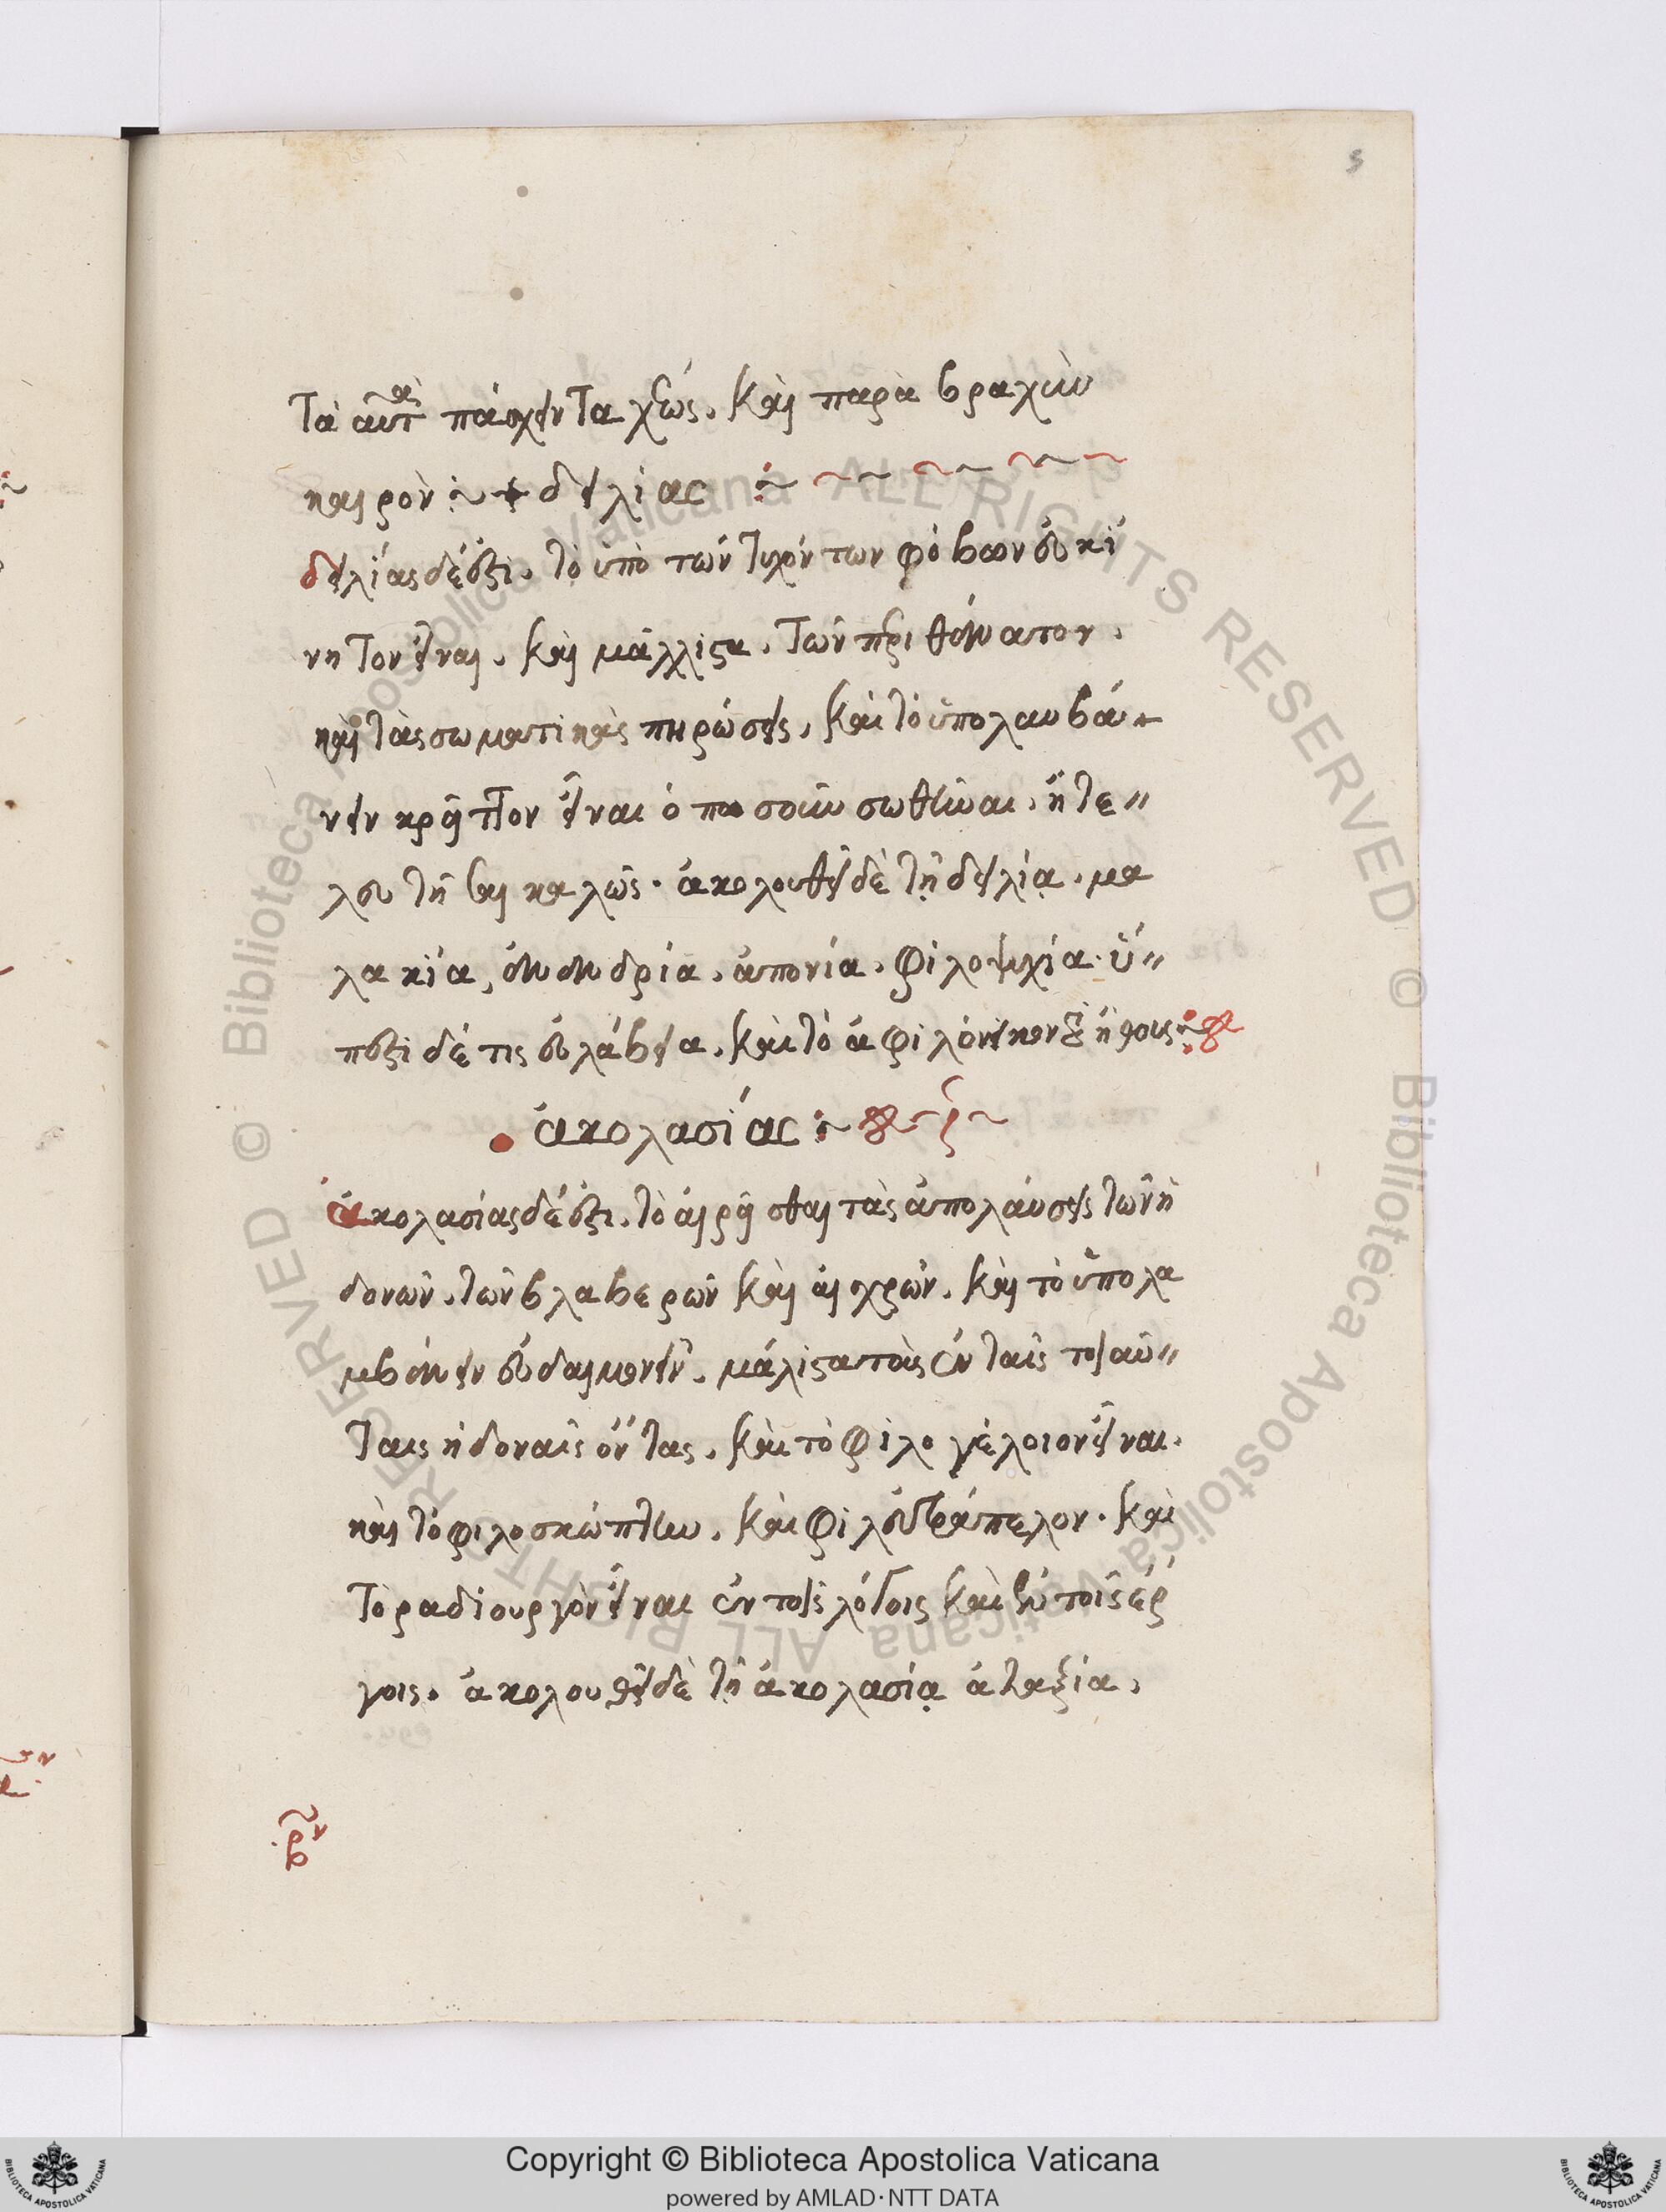 5
Τὰ αὐτὰ πάσχειν ταχέως. καὶ παρὰ βραχὺν
καιρὸν :~ + δειλίας :~
δειλίας δέ ἐστι. τὸ ὑπὸ τῶν τυχόντων φόβων εὐκί
νητον εἶναι. καὶ μάλλιστα. τῶν περὶ θάνατον.
καὶ τὰς σωματικὰς πηρώσεις. καὶ τὸ ὑπολαυβά-
νειν κρεῖττον εἶναι ὁ πωσοῦν σωθῆναι. ἢ τε〃
λευτῆσαι καλῶς· ἀκολουθεῖ δὲ τῇ δειλίᾳ. μα
λακία, ἀνανδρία. ἀπονία. φιλοψυχία· ὕ〃
πεστι δέ τις εὐλάβεια. καὶ τὸ ἀφιλόνεικον τοῦ ἤθους :~
ἀκολασίας :~
ἀκολασίας δέ ἐστι. τὸ αἱρεῖσθαι τὰς ἀπολαύσεις τῶν ἡ
δονῶν. τῶν βλαβερῶν καὶ αἰσχρῶν. καὶ τὸ ὑπολα
μβάνειν εὐδαιμονεῖν. μάλιστα τοὺς ἐν ταῖς τοιαύ〃
ταις ἡδοναῖς ὄντας. καὶ τὸ φιλογέλοιον εἶναι.
καὶ τὸ φιλοσκώπτην. καὶ φιλευτράπελον· καὶ
Τὸ ραδιουργὸν εἶναι ἐν τοῖς λόγοις καὶ ἐν τοῖς ἔρ
γοις. ἀκολουθεῖ δὲ τῇ ἀκολασίᾳ ἀταξία.
© Biblioteca Apostolica Vaticana ALL RIGHTS RESERVED © Biblioteca Apostolica Vaticana ALL RIGHTS RESERVED
Copyright © Biblioteca Apostolica Vaticana
powered by AMLAD·NTT DATA
BIBLIOTECA APOSTOLICA VATICANA
BIBLIOTECA APOSTOLICA VATICANA